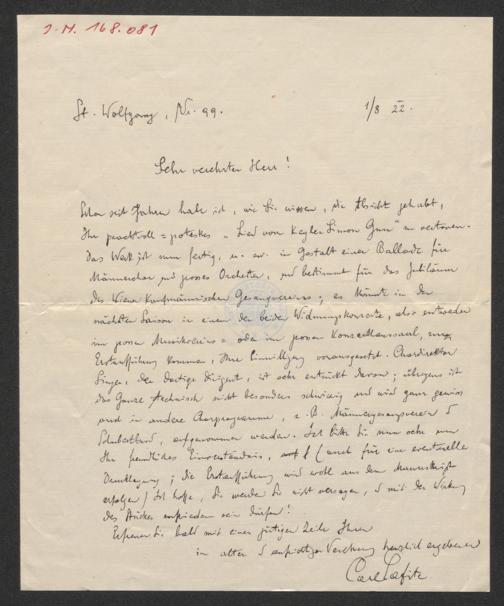 J. N. 168.081
St. Wolfgang, Nr. 99. 1/8 22.
Sehr verehrter Herr!
Schon seit Jahren habe ich, wie Sie wissen, die Absicht gehabt,
Ihr prachtvoll = groteskes „Lied vom Simon Gunn“ zu vertonen.
Das Werk ist nun fertig, u. zw. in Gestalt einer Ballade für
Männerchor und grosses Orchester, und bestimmt für das Jubiläum
des Wiener Kaufmännischen Gesangvereins; es könnte in der
nächsten Saison in einem der beiden Widmungskonzerte, also entweder
im grossen Musikvereins- oder im grossen Konzerthaussaal, zur
Erstaufführung kommen, Ihre Einwilligung vorausgesetzt. Chordirektor
der dortige Dirigent, ist sehr entzückt davon; übrigens ist
das Ganze technisch nicht besonders schwierig und wird ganz gewiss
auch in andere Chorprogramme, z. B. Männergesangverein &
Schubertbund, aufgenommen werden. Ich bitte Sie nun sehr um
Ihr freundliches Einverständnis, (auch für eine eventuelle
Drucklegung; die Erstaufführung wird wohl aus dem Manuskript
erfolgen) Ich hoffe, Sie werden es nicht versagen, & mit der Wirkung
des Stückes zufrieden sein dürfen!
Erfreuen Sie bald mit einer gütigen Zeile Ihren
in alter & aufrichtiger Verehrung herzlich ergebenen
Carl Lafite